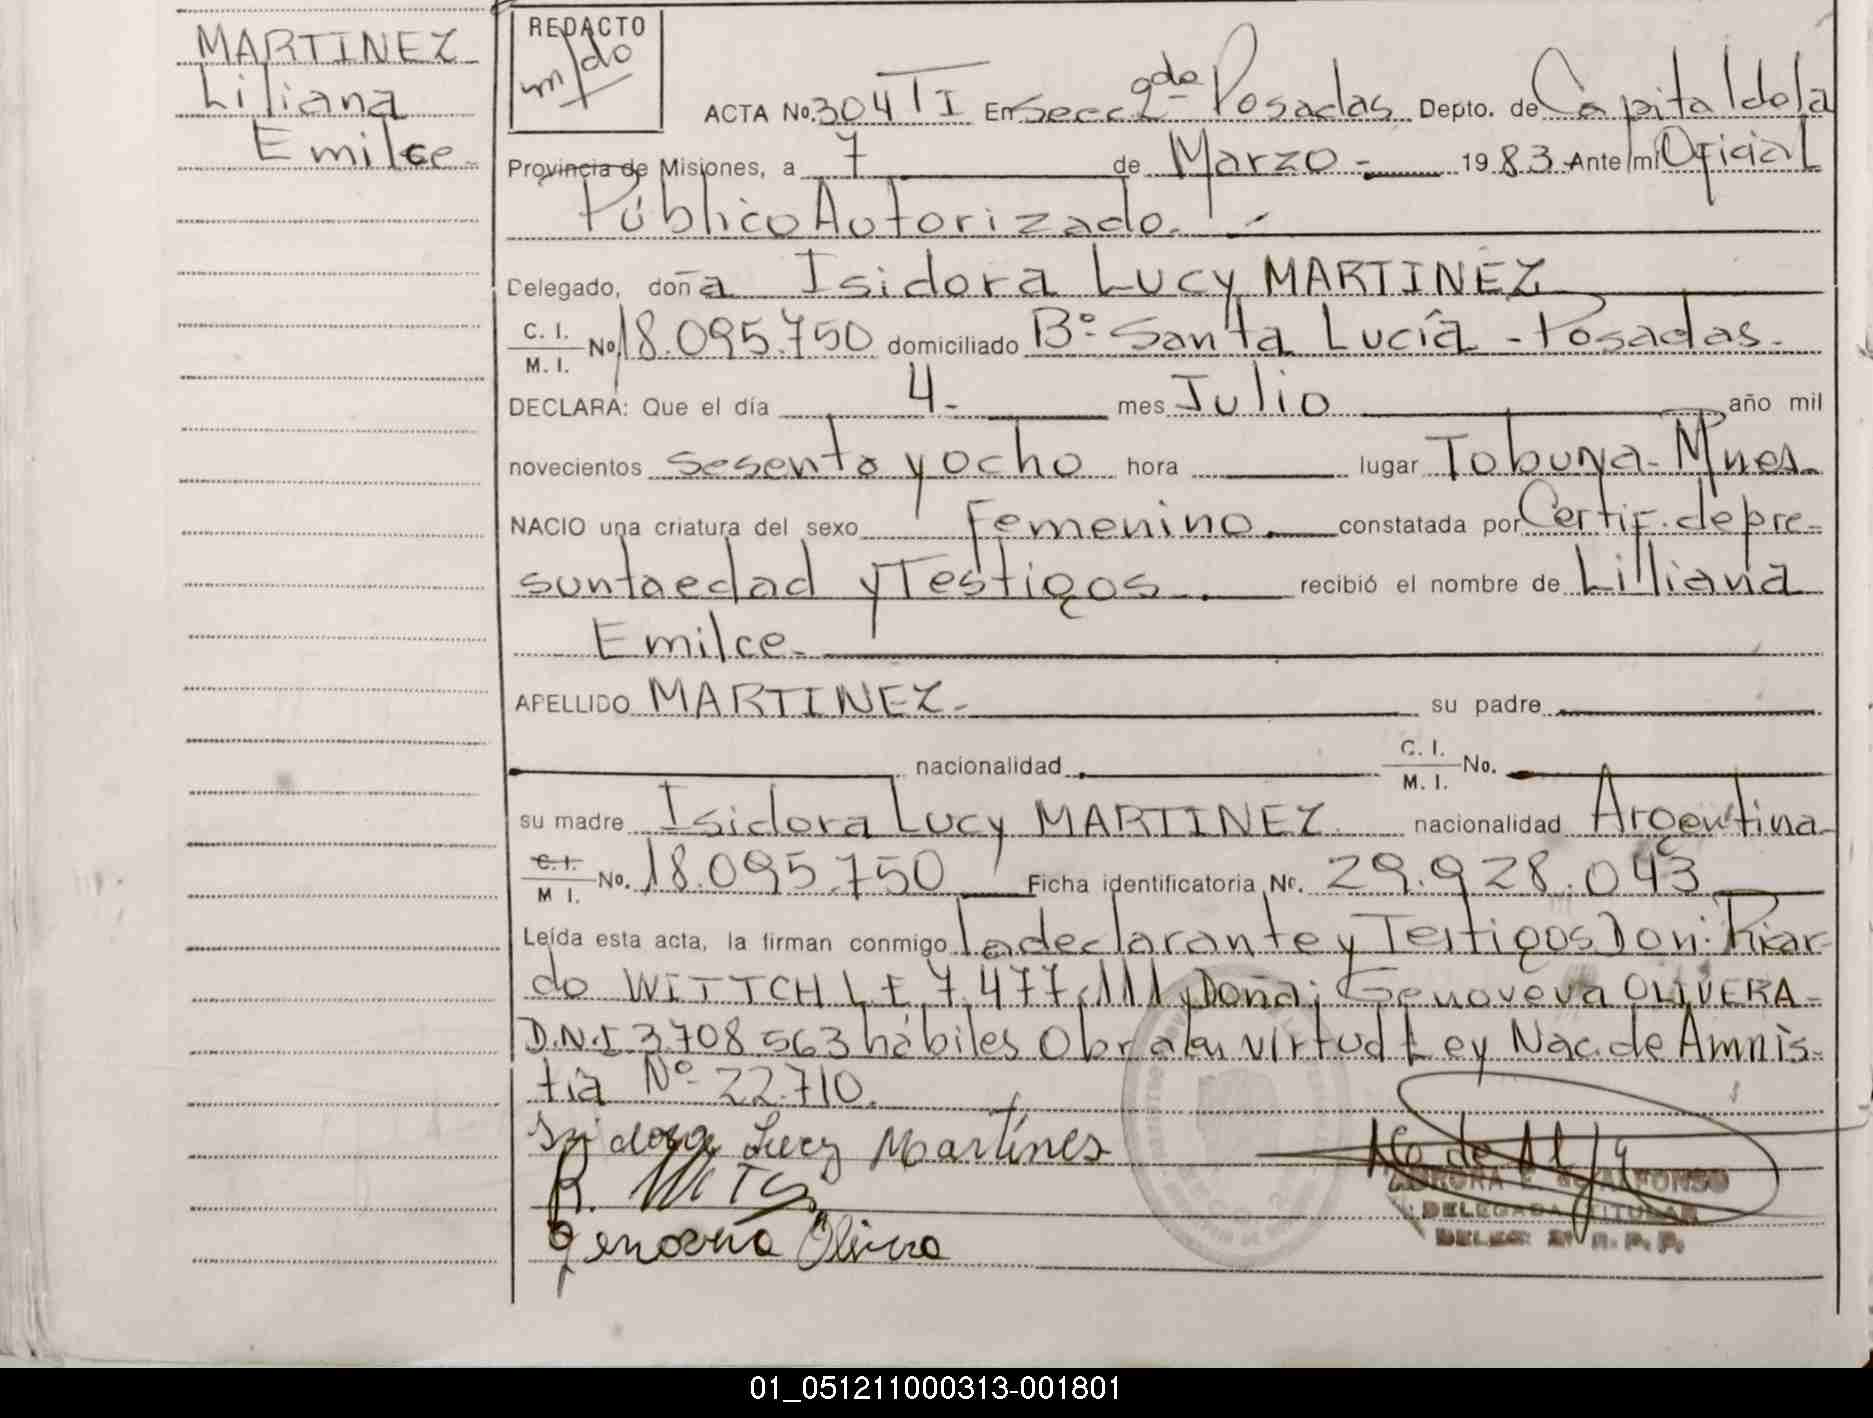 MARTINEZ
Liliana
Emilce
REDACTO
ACTA No. 304 TI En Secc 2da Posadas Depto. de Capital de la
Provincia de Misiones, a 7 de Marzo - 1983 Ante mí Oficial
Público Autorizado. -
Delegado, doña Isidora Lucy MARTINEZ
C. I.
M. I. No. 18.095.750 domiciliado Bº Santa Lucía - Posadas.
DECLARA: Que el día 4 - mes Julio año mil
novecientos sesenta y ocho hora lugar Tobuna - Mnes.
NACIO una criatura del sexo Femenino. constatada por Certif. de pre-
sunta edad y Testigos. recibió el nombre de Lilliana
Emilce.
APELLIDO MARTINEZ - su padre
nacionalidad C. I.
M. I. No.
su madre Isidora Lucy MARTINEZ nacionalidad Argentina
C. I.
M I. No. 18.095.750 Ficha identificatoria Nr. 29.928.043
Leída esta acta, la firman conmigo la declarante y Testigos Don: Ricar-
do WITTCH L E 7.477.111 y Doña: Genoveva OLIVERA -
D.N.I 3.708.563 hábiles Obra en virtud Ley Nac. de Amnis-
tia Nº 22.710.
Isidora Lucy Martínes
Genoveva Olivera
DELEGADA TITULAR
01_051211000313-001801